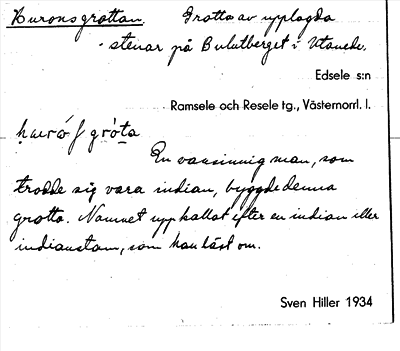 Huronsgrottan. Grotta av upplagda
stenar på Bulutberget i Utanede.
Edsele s:n
Ramsele och Resele tg., Västernorrl. l.
grò̀ta
En vansinnig man, som
trodde sig vara indian, byggde denna
grotta. Namnet uppkallat efter en indian eller
indianstam, som han läst om.
Sven Hiller 1934